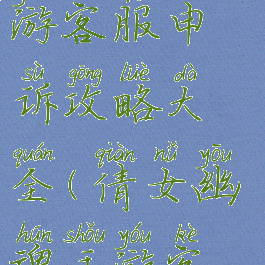 游客服申
sù gōng lüè dà
诉攻略大
quán qiàn nǚ yōu
全(倩女幽
hún shǒu yóu kè
魂手游客